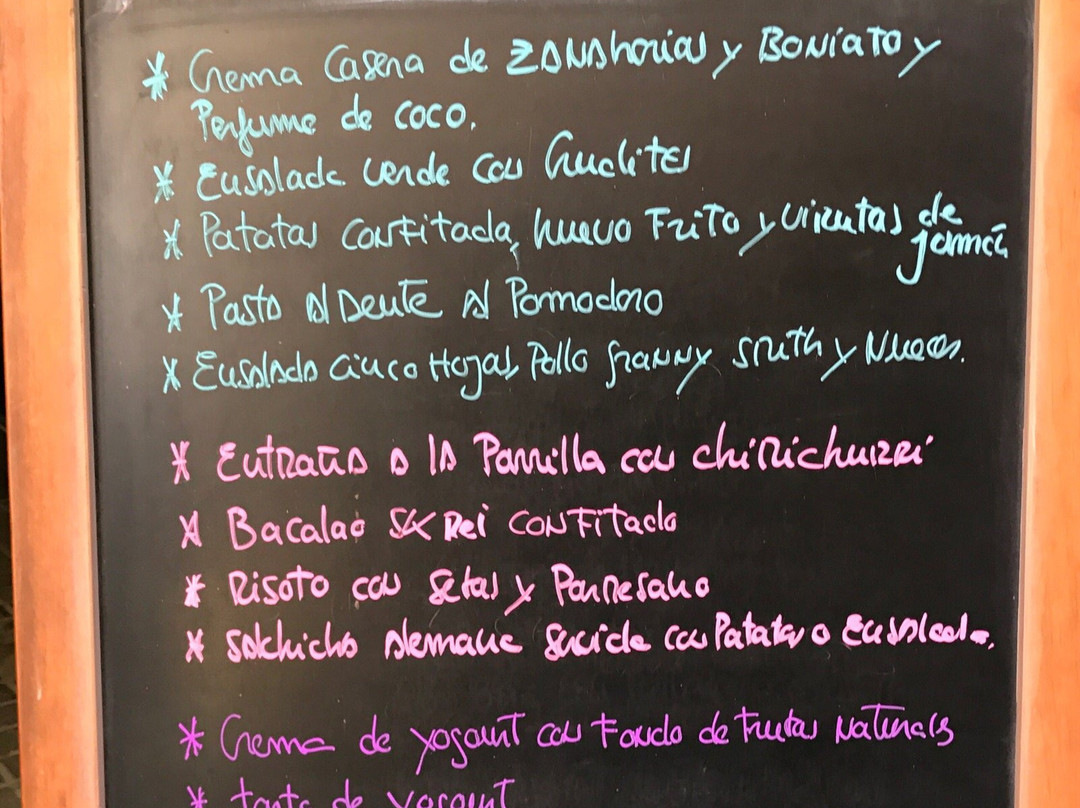 * Crema Casera de ZANAhorias y BONIATO y
Perfume de coco.
* Ensalada verde con Crudites
* Patatas Confitada, huevo FRITO y virutas de
jamón
* Pasta Al DENTE Al Pomodoro
* Ensalada cinco Hojas, Pollo granny smith y Nueces.
* Entraña a la Parrilla con chiRichurri
* Bacalao SKRei CONFITado
* Risoto con Setas y Parmesano
* Salchicha Alemana Sucide con Patatas o Ensalada.
* Crema de yogourt con Fondo de frutas Naturales
* tarta de yogourt